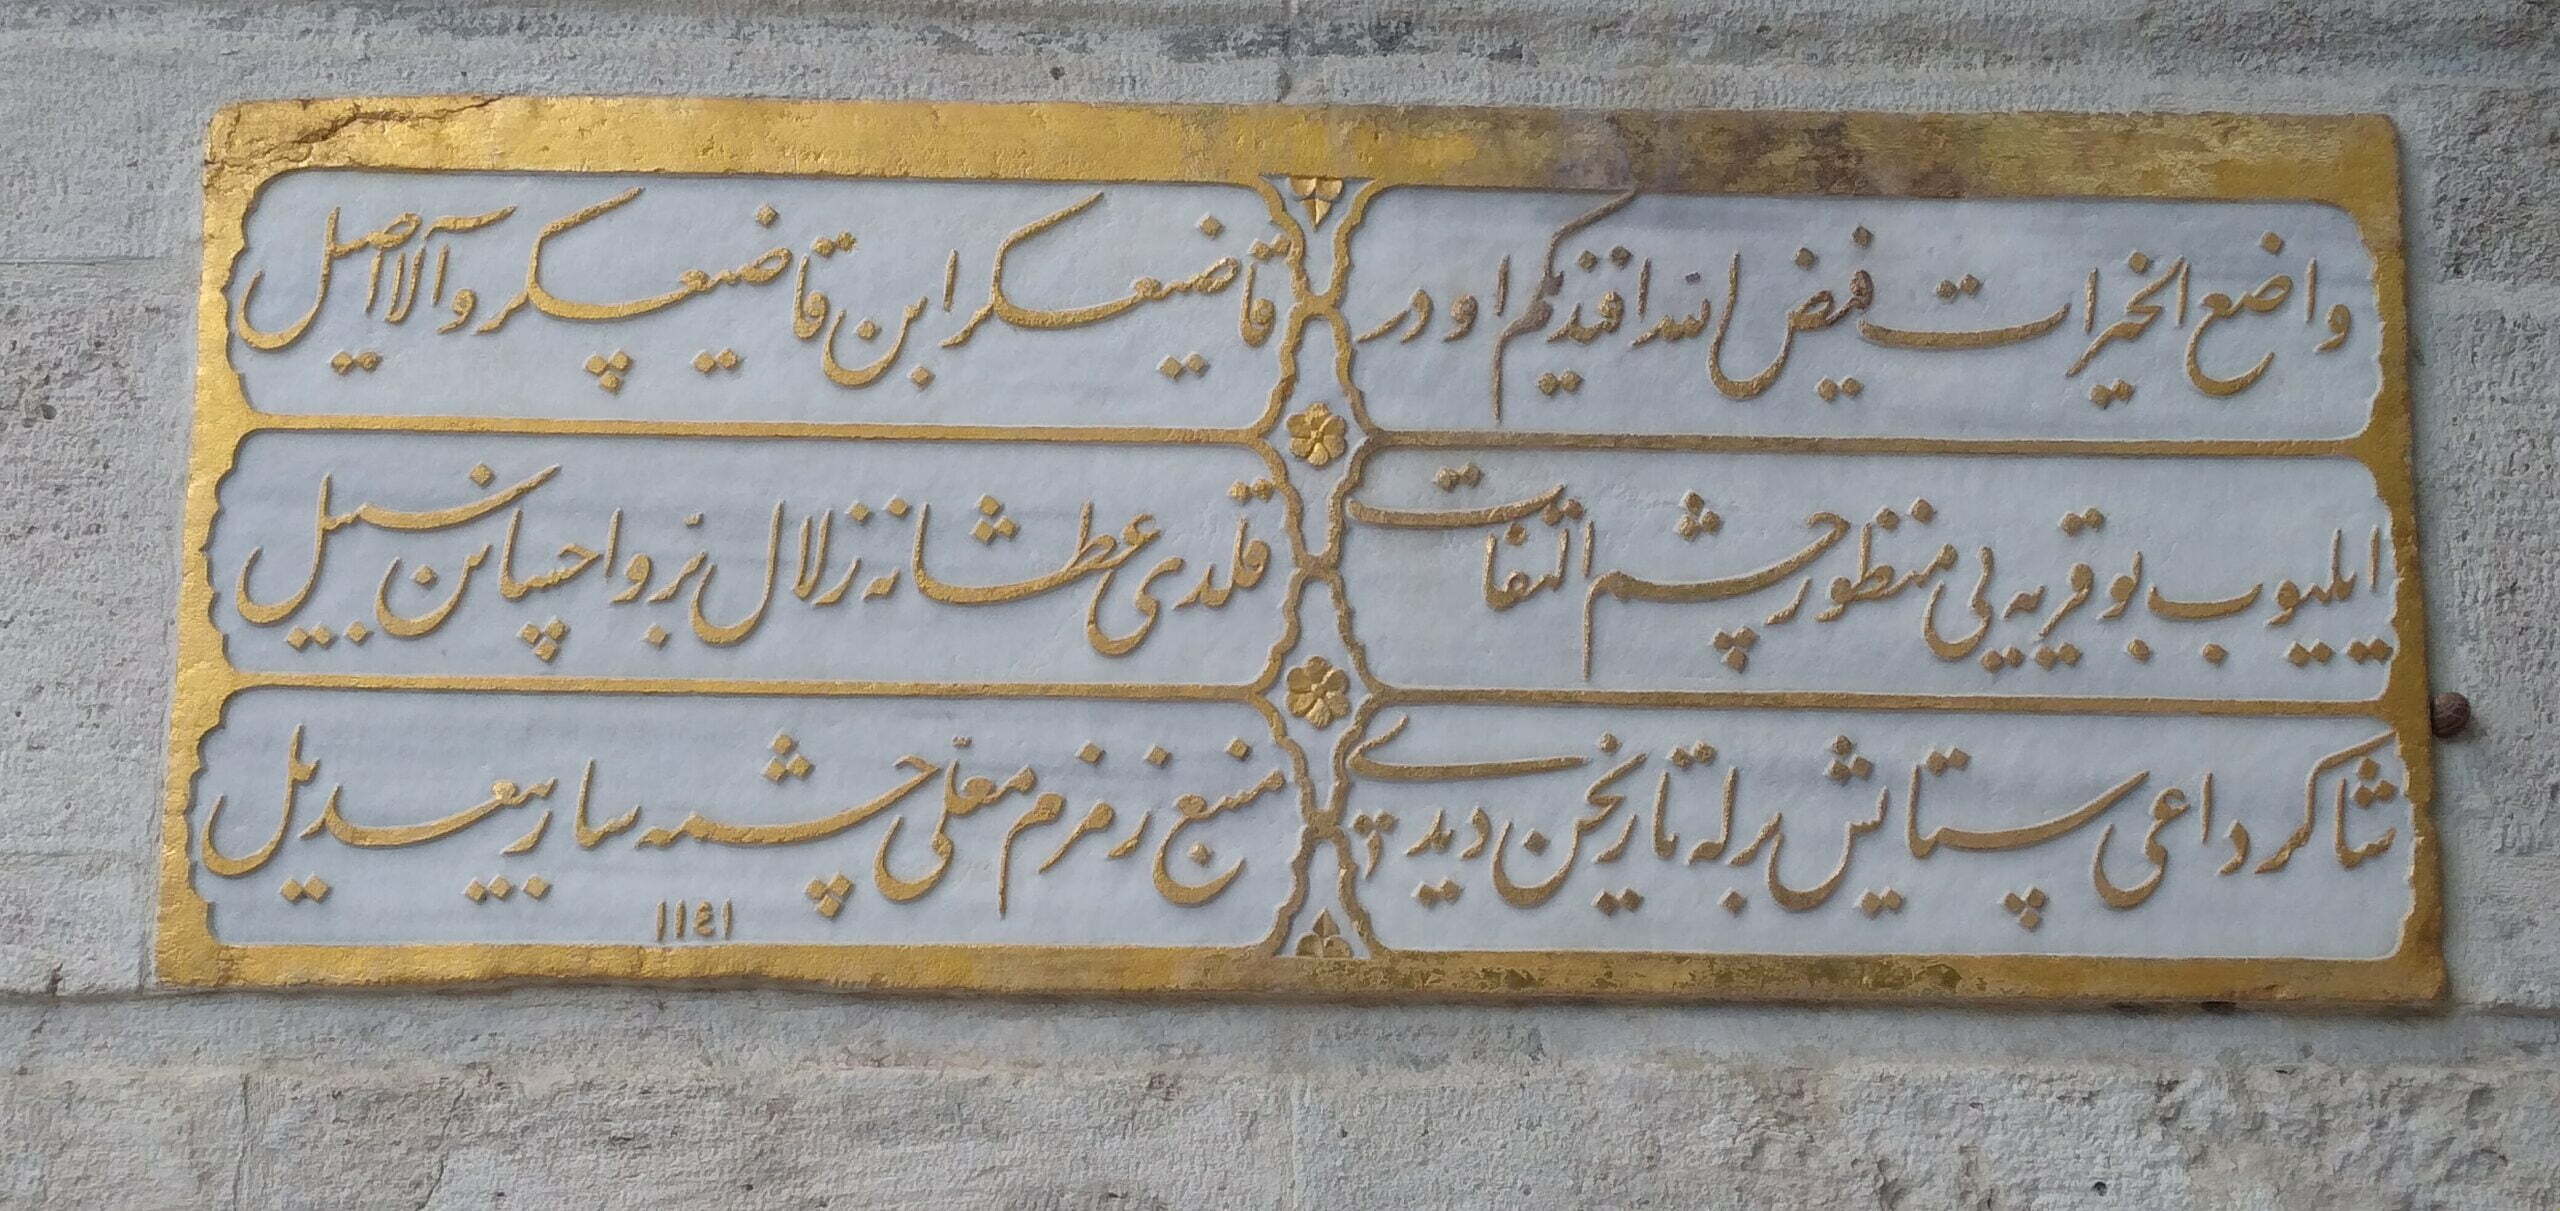 واضع الخيرات فيض الله افنديكم اودر
قاضيعسكر ابن قاضيعسكر و آلا اصيل
ايليوب بو قريه يى منظور چشم التفات
قلدى عطشانه زلال بر و احسانن سبيل
شاكر داعى ستايش برله تاريخن ديدى
منبع زمزم معلى چشمه سار بيعديل
١١٤١